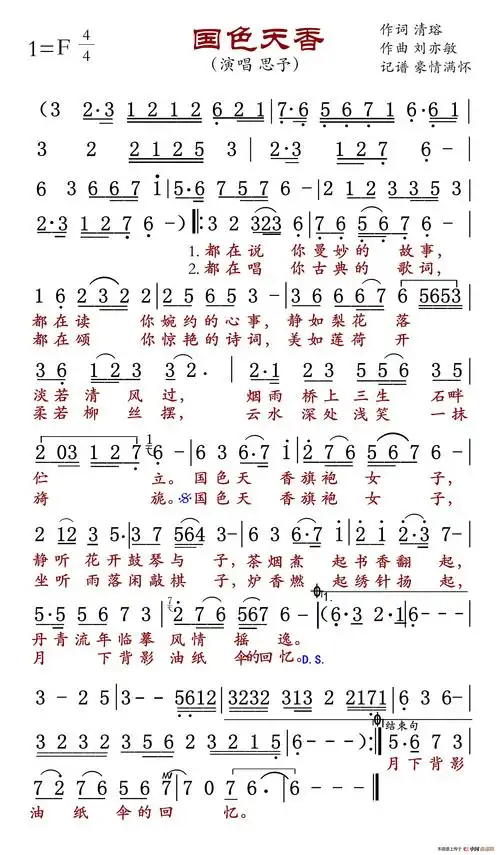 国色天香
1=F 4/4
(演唱 思予)
作词 清瑢
作曲 刘亦敏
记谱 豪情满怀
(3 2·3 1 2 1 2 6 2 1 | 7·6 5 6 7 1 6·
3 2 2 1 2 5 3 | 2·3 1 2 7 6 -
6 3 6 6 7 i | 5·6 7 5 7 6 - | 2 1 2 3 3 5 3
2·3 1 2 7 6 - ) ‖: 3 2 323 3· | 7 6 5 6 7 6 -
1.都在说 你曼妙的 故事,
2.都在唱 你古典的 歌词,
1 6 2 3 2 2 | 2 5 6 5 3 - | 3 6 6 6 7 6 5653
都在读 你婉约的心事, 静如梨花 落
都在颂 你惊艳的诗词, 美如莲荷 开
3 6 1 6 2 3 3 2· | 2·1 2 3 5 6 3 5
淡若清风过, 烟雨桥上三生 石畔
柔若柳丝摆, 云水深处浅笑 一抹
2 03 1 2 7 6 - | 6 3 6·7 i | 7 6 7 5 6 7 6 -
伫 立。国色天 香旗袍 女 子,
旖 旎。国色天 香旗袍 女 子,
2 12 3 5·3 | 5 7 564 3 - | 6 3 6·7 i | 2 i 2·3 7 -
静听 花开鼓琴与 子,茶烟煮 起书香翻 起,
坐听 雨落闲敲棋 子,炉香燃 起绣针扬 起,
5·5 5 6 7 7 3 | 2 7 6 567 6 - | (6·3 2·1 | 6 - - -
1.
丹青流年临摹 风情 摇 逸。
月 下背影油纸 伞的回 忆。D.S.
3 - 2 5 | 3 - - 5612 | 3232 313 2 2171 | 6 3 6 -
3 2 3 2 2 3 5 6 2 3 2 1 5 | 6 - - - ):‖ 5·6 7 3
结束句
月下背影
7 2 7 6 5 6 7 | 7 0 7 6 - | 6 - - - ‖
油 纸 伞的回 忆。